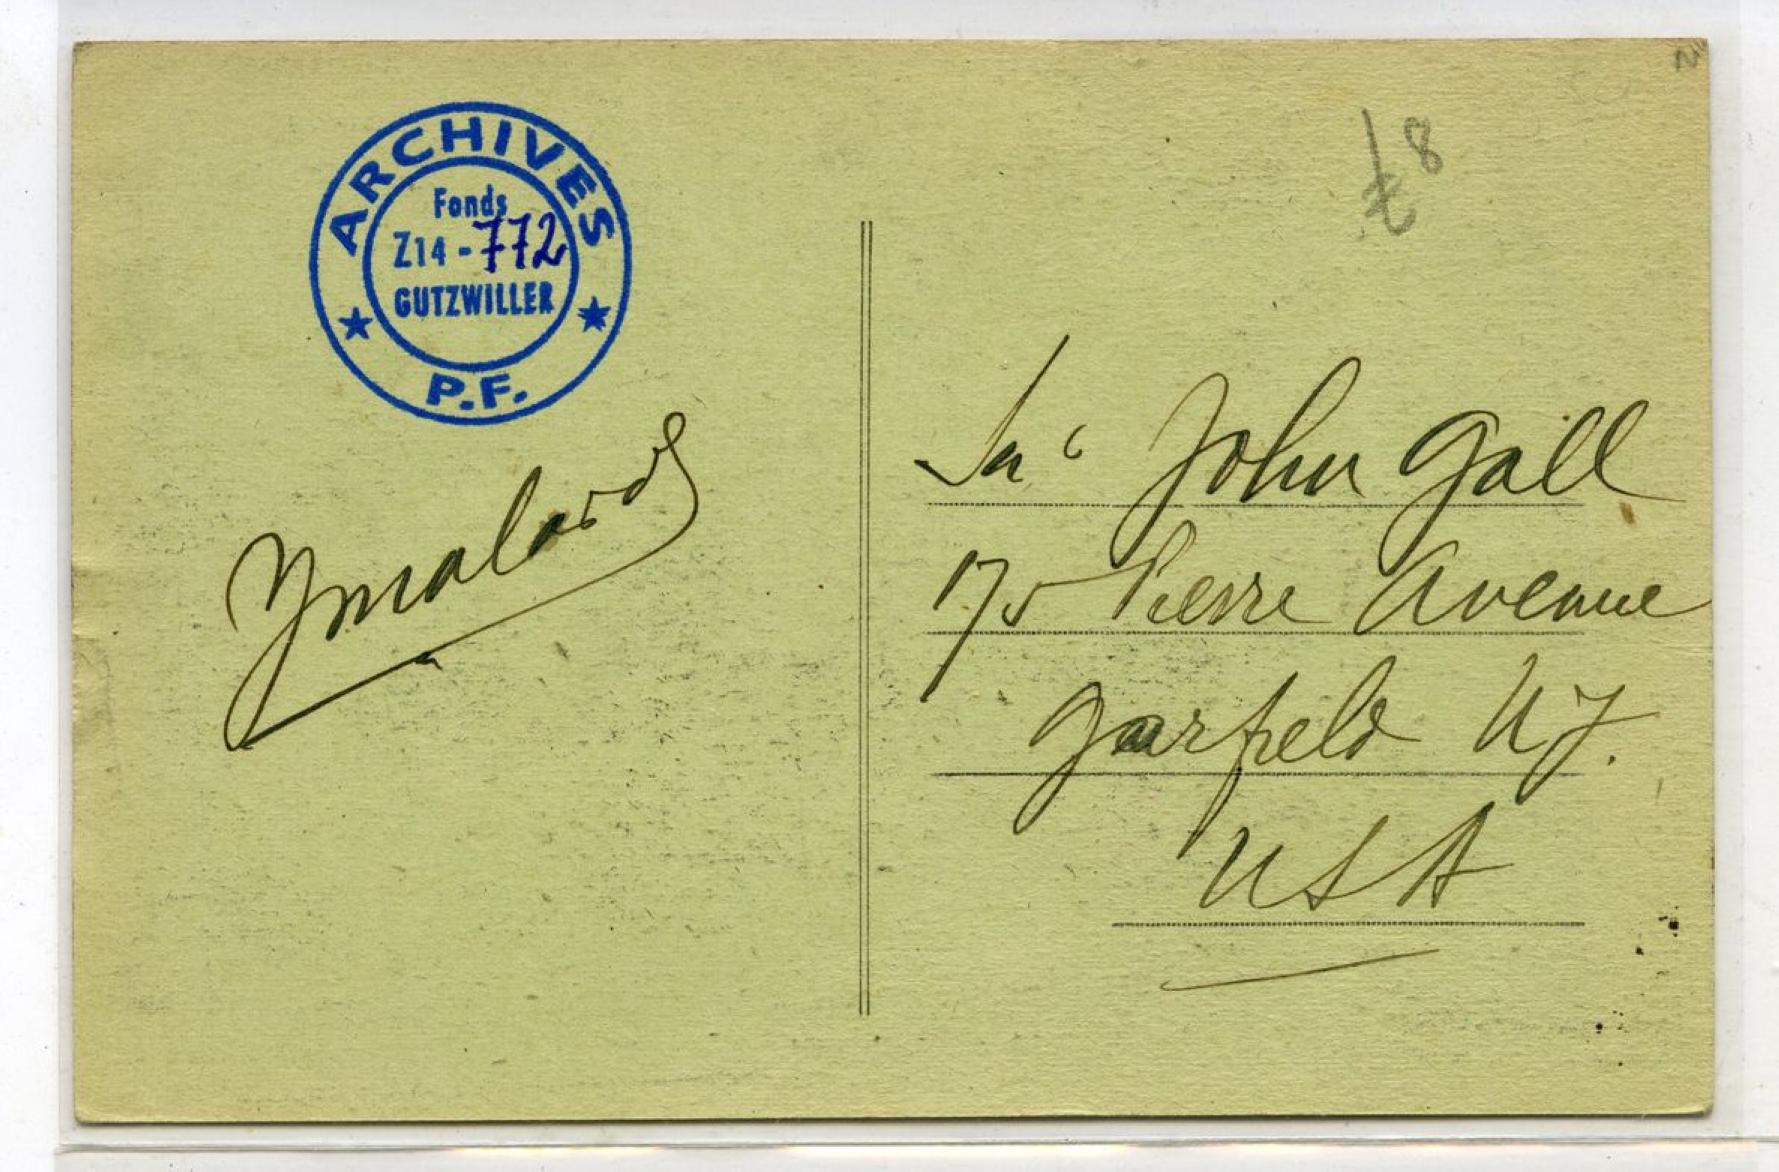 ARCHIVES
Fonds
Z14 - 772
GUTZWILLER
P.F.
£8
John Gall
175 Pierre Avenue
Garfield NJ.
USA